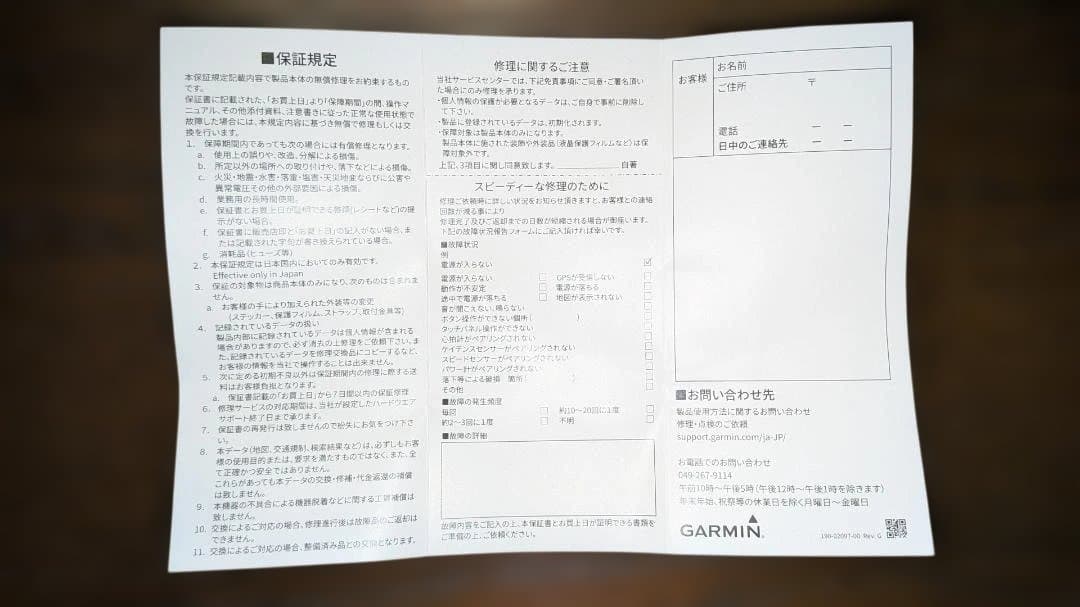 ■保証規定
本保証規定記載内容で製品本体の無償修理をお約束するもの
です。
保証書に記載された、「お買上日」より「保障期間」の間、操作マ
ニュアル、その他添付資料、注意書きに従った正常な使用状態で
故障した場合には、本規定内容に基づき無償で修理もしくは交
換を行います。
1. 保障期間内であっても次の場合には有償修理となります。
a. 使用上の誤りや、改造、分解による損傷。
b. 所定以外の場所への取り付けや、落下などによる損傷。
c. 火災・地震・水害・落雷・塩害・天災地変ならびに公害や
異常電圧その他の外部要因による損傷。
d. 業務用の長時間使用。
e. 保証書とお買上日が証明できる書類(レシートなど)の提
示がない場合。
f. 保証書に販売店印と「お買上日」の記入がない場合、ま
たは記載された字句が書き換えられている場合。
g. 消耗品(ヒューズ等)
2. 本保証規定は日本国内においてのみ有効です。
Effective only in Japan
3. 保証の対象物は商品本体のみになり、次のものは含まれま
せん。
a. お客様の手により加えられた外装等の変更
(ステッカー、保護フィルム、ストラップ、取付金具等)
4. 記録されているデータの扱い
製品内部に記録されているデータは個人情報が含まれる
場合がありますので、必ず消去の上修理をご依頼下さい。ま
た、記録されているデータを修理交換品にコピーするなど、
お客様の情報を当社で操作することは出来ません。
5. 次に定める初期不良以外は保証期間内の修理に際する送
料はお客様負担となります。
a. 保証書記載の「お買上日」から7日間以内の保証修理
6. 修理サービスの対応期間は、当社が設定したハードウエア
サポート終了日まで承ります。
7. 保証書の再発行は致しませんので紛失にお気をつけ下さ
い。
8. 本データ(地図、交通規制、検索結果など)は、必ずしもお客
様の使用目的または、要求を満たすものではなく、また、全
て正確かつ安全ではありません。
これらがあっても本データの交換・修補・代金返還の補償
は致しません。
9. 本機器の不具合による機器脱着などに関する工賃補償は
致しません。
10. 交換によるご対応の場合、修理進行後は故障品のご返却は
できません。
11. 交換によるご対応の場合、整備済み品との交換となります。
修理に関するご注意
当社サービスセンターでは、下記免責事項にご同意・ご署名頂い
た場合にのみ修理を承ります。
・個人情報の保護が必要となるデータは、ご自身で事前に削除し
て下さい。
・製品に登録されているデータは、初期化されます。
・保障対象は製品本体のみになります。
製品本体に施された装飾や外装品(液晶保護フィルムなど)は保
障対象外です。
上記、3項目に関し同意致します。 自著
スピーディーな修理のために
修理ご依頼時に詳しい状況をお知らせ頂きますと、お客様との連絡
回数が減る事により
修理完了及びご返却までの日数が短縮される場合が御座います。
下記の故障状況報告フォームにご記入頂ければ幸いです。
■故障状況
例
電源が入らない ☑
電源が入らない □ GPSが受信しない □
動作が不安定 □ 電源が落ちる □
途中で電源が落ちる □ 地図が表示されない □
音が聞こえない、鳴らない □
ボタン操作ができない個所( ) □
タッチパネル操作ができない □
心拍計がペアリングされない □
ケイデンスセンサーがペアリングされない □
スピードセンサーがペアリングされない □
パワー計がペアリングされない □
落下等による破損 箇所( ) □
その他 □
■故障の発生頻度
毎回 □ 約10~20回に1度 □
約2~3回に1度 □ 不明 □
■故障の詳細
故障内容をご記入の上、本保証書とお買上日が証明できる書類を
ご準備の上、ご依頼ください。
お客様
お名前
ご住所 〒
電話 ー ー
日中のご連絡先 ー ー
■お問い合わせ先
製品使用方法に関するお問い合わせ
修理・点検のご依頼
support.garmin.com/ja-JP/
お電話でのお問い合わせ
049-267-9114
午前10時~午後5時(午後12時~午後1時を除きます)
年末年始、祝祭等の休業日を除く月曜日~金曜日
GARMIN
190-02097-00 Rev. G